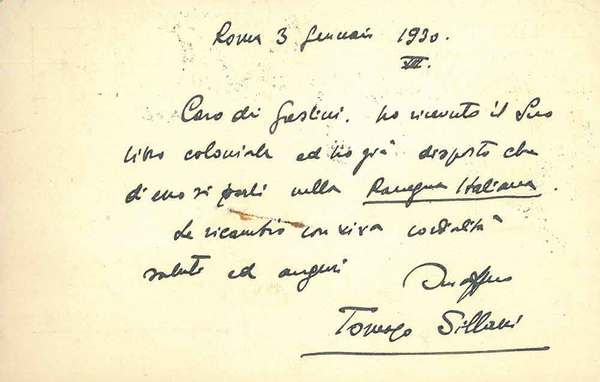 Roma 3 Gennaio 1930.
VIII.
Caro di Giastini. ho ricevuto il Suo
libro coloniale ed ho già disposto che
di esso si parli nella Rassegna Italiana.
Le ricambio con viva cordialità
saluti ed auguri
Tomaso Sillani